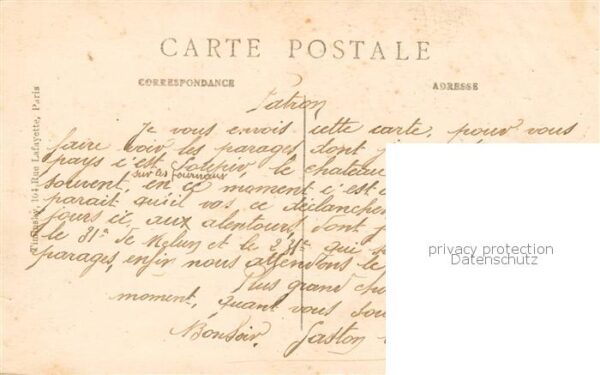 CARTE POSTALE
CORRESPONDANCE
ADRESSE
104, Rue Lafayette, Paris
Patron
Je vous envois cette carte, pour vous
faire voir les parages dont
pays c'est Soupir, le chateau
sur les journaux
souvent, en ce moment c'est
parait qu'il vas ce déclancher
jours ici, aux alentours, dont
le 31e de Melun et le 231e qui
parages, enfin nous attendons le
Plus grand
moment, quant vous
Bonsoir. Gaston
privacy protection
Datenschutz